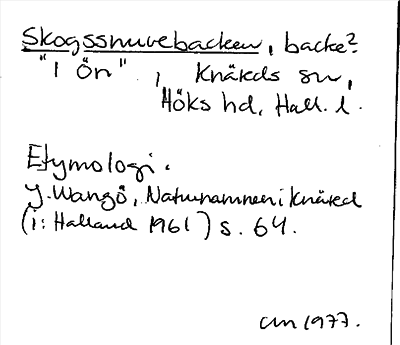 Skogssnuvebacken, backe?
"I Ön", Knäreds sn,
Höks hd, Hall. l.
Etymologi.
J. Wangö, Naturnamnen i Knäred
(i: Halland 1961) s. 64.
cm 1977.